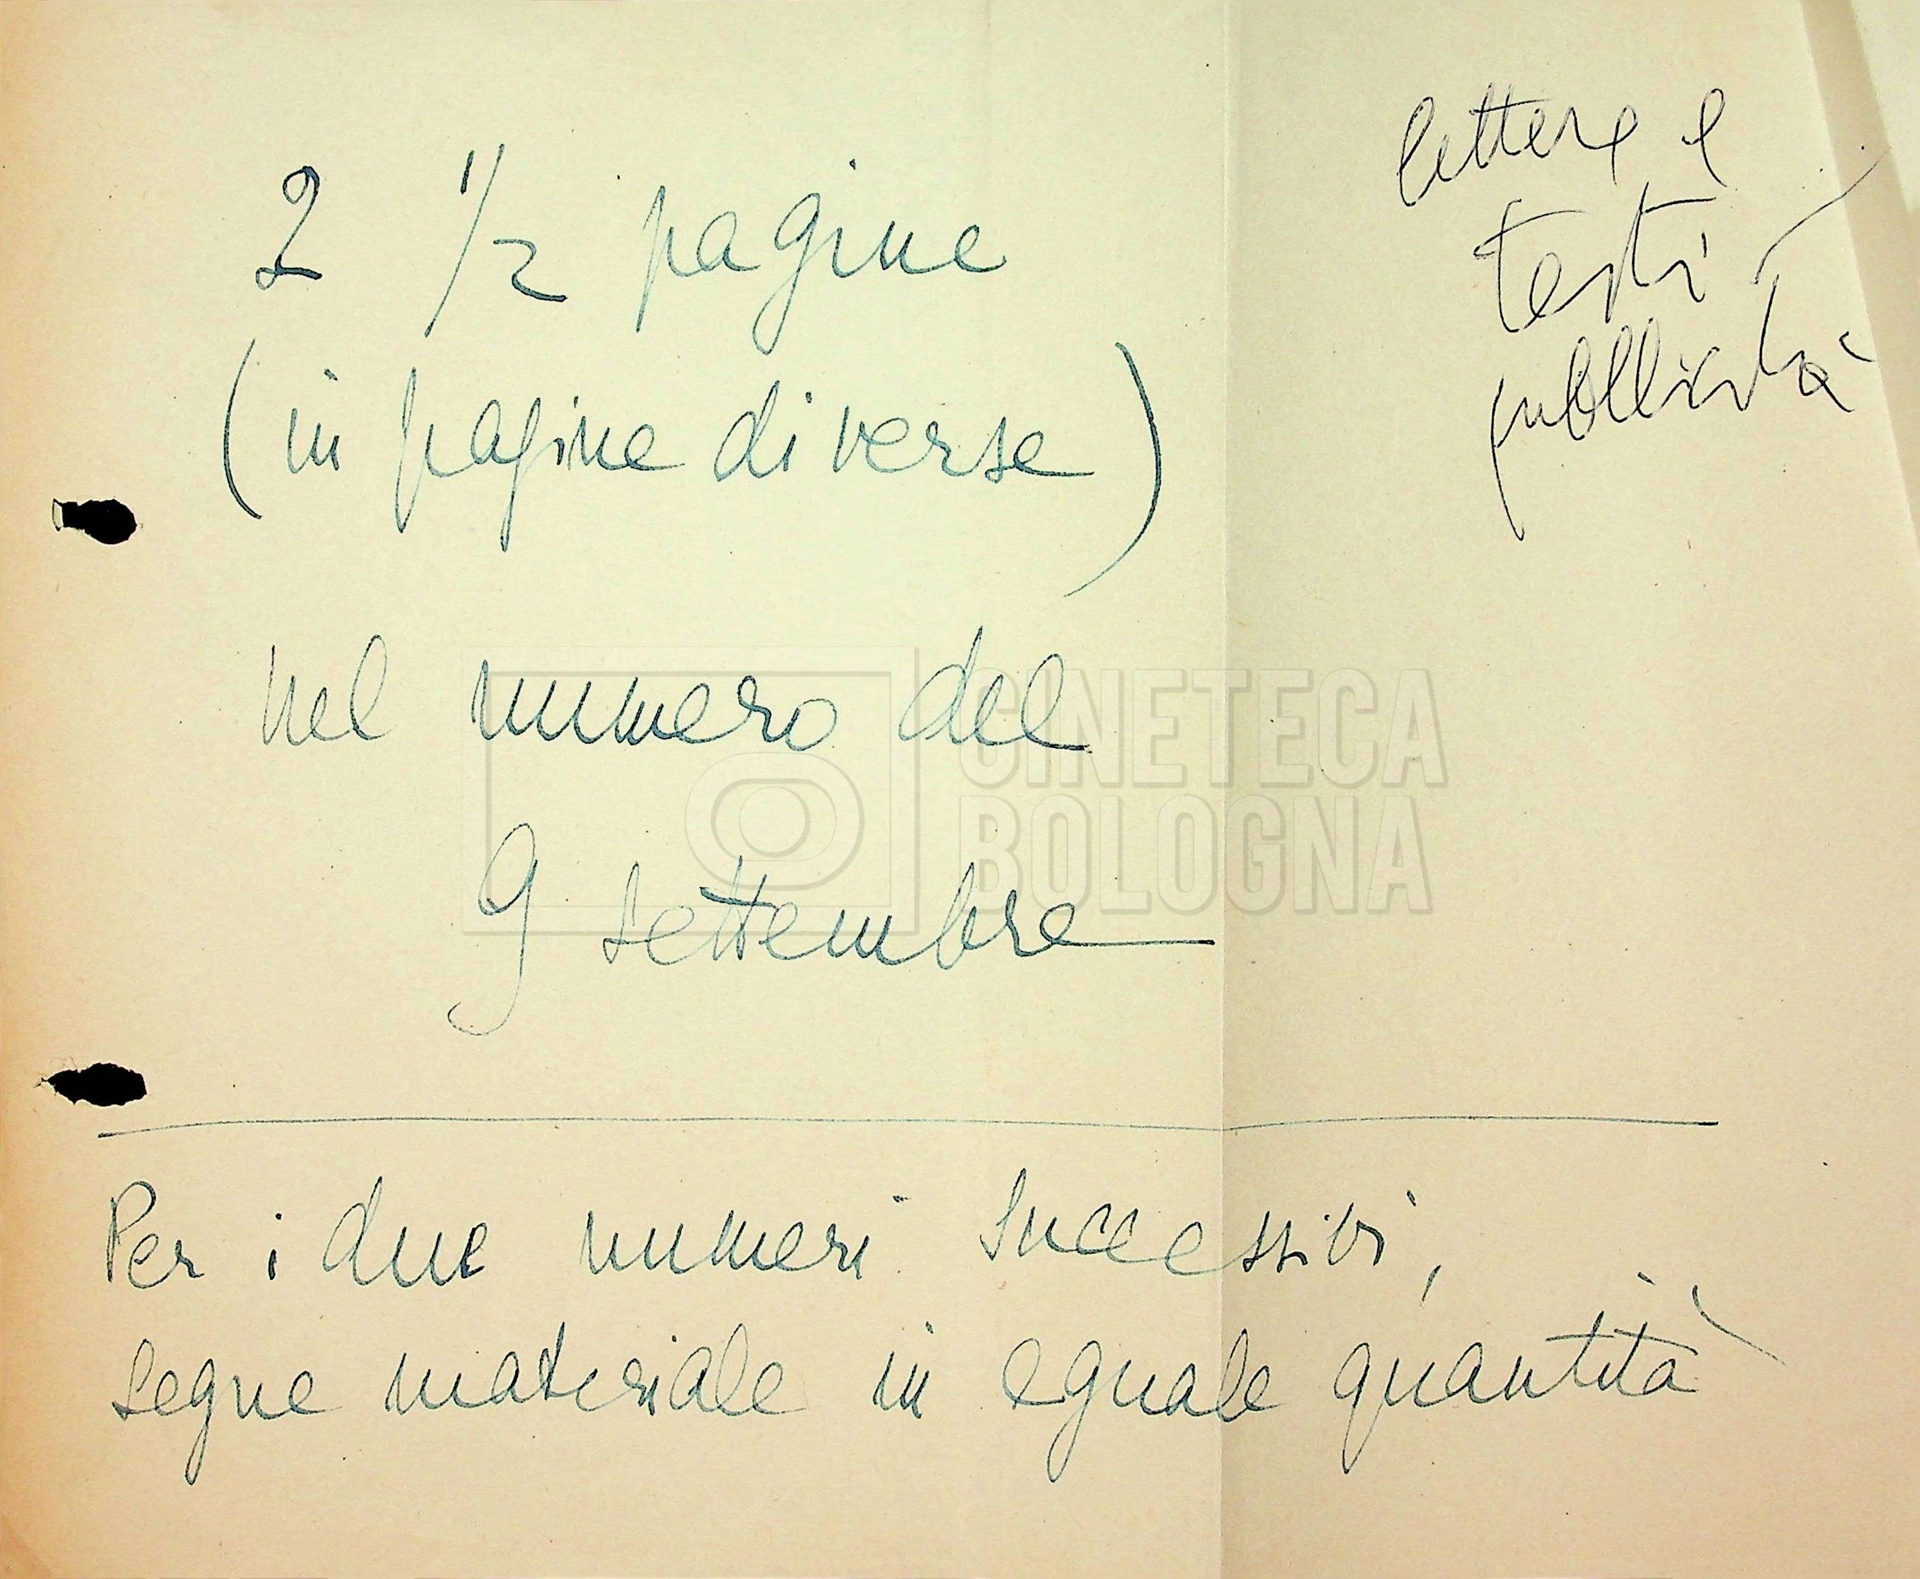 lettere e
testi
pubblicità
2 1/2 pagine
(in pagine diverse)
nel numero del
9 settembre
CINETECA
BOLOGNA
Per i due numeri successivi,
segue materiale in eguale quantità